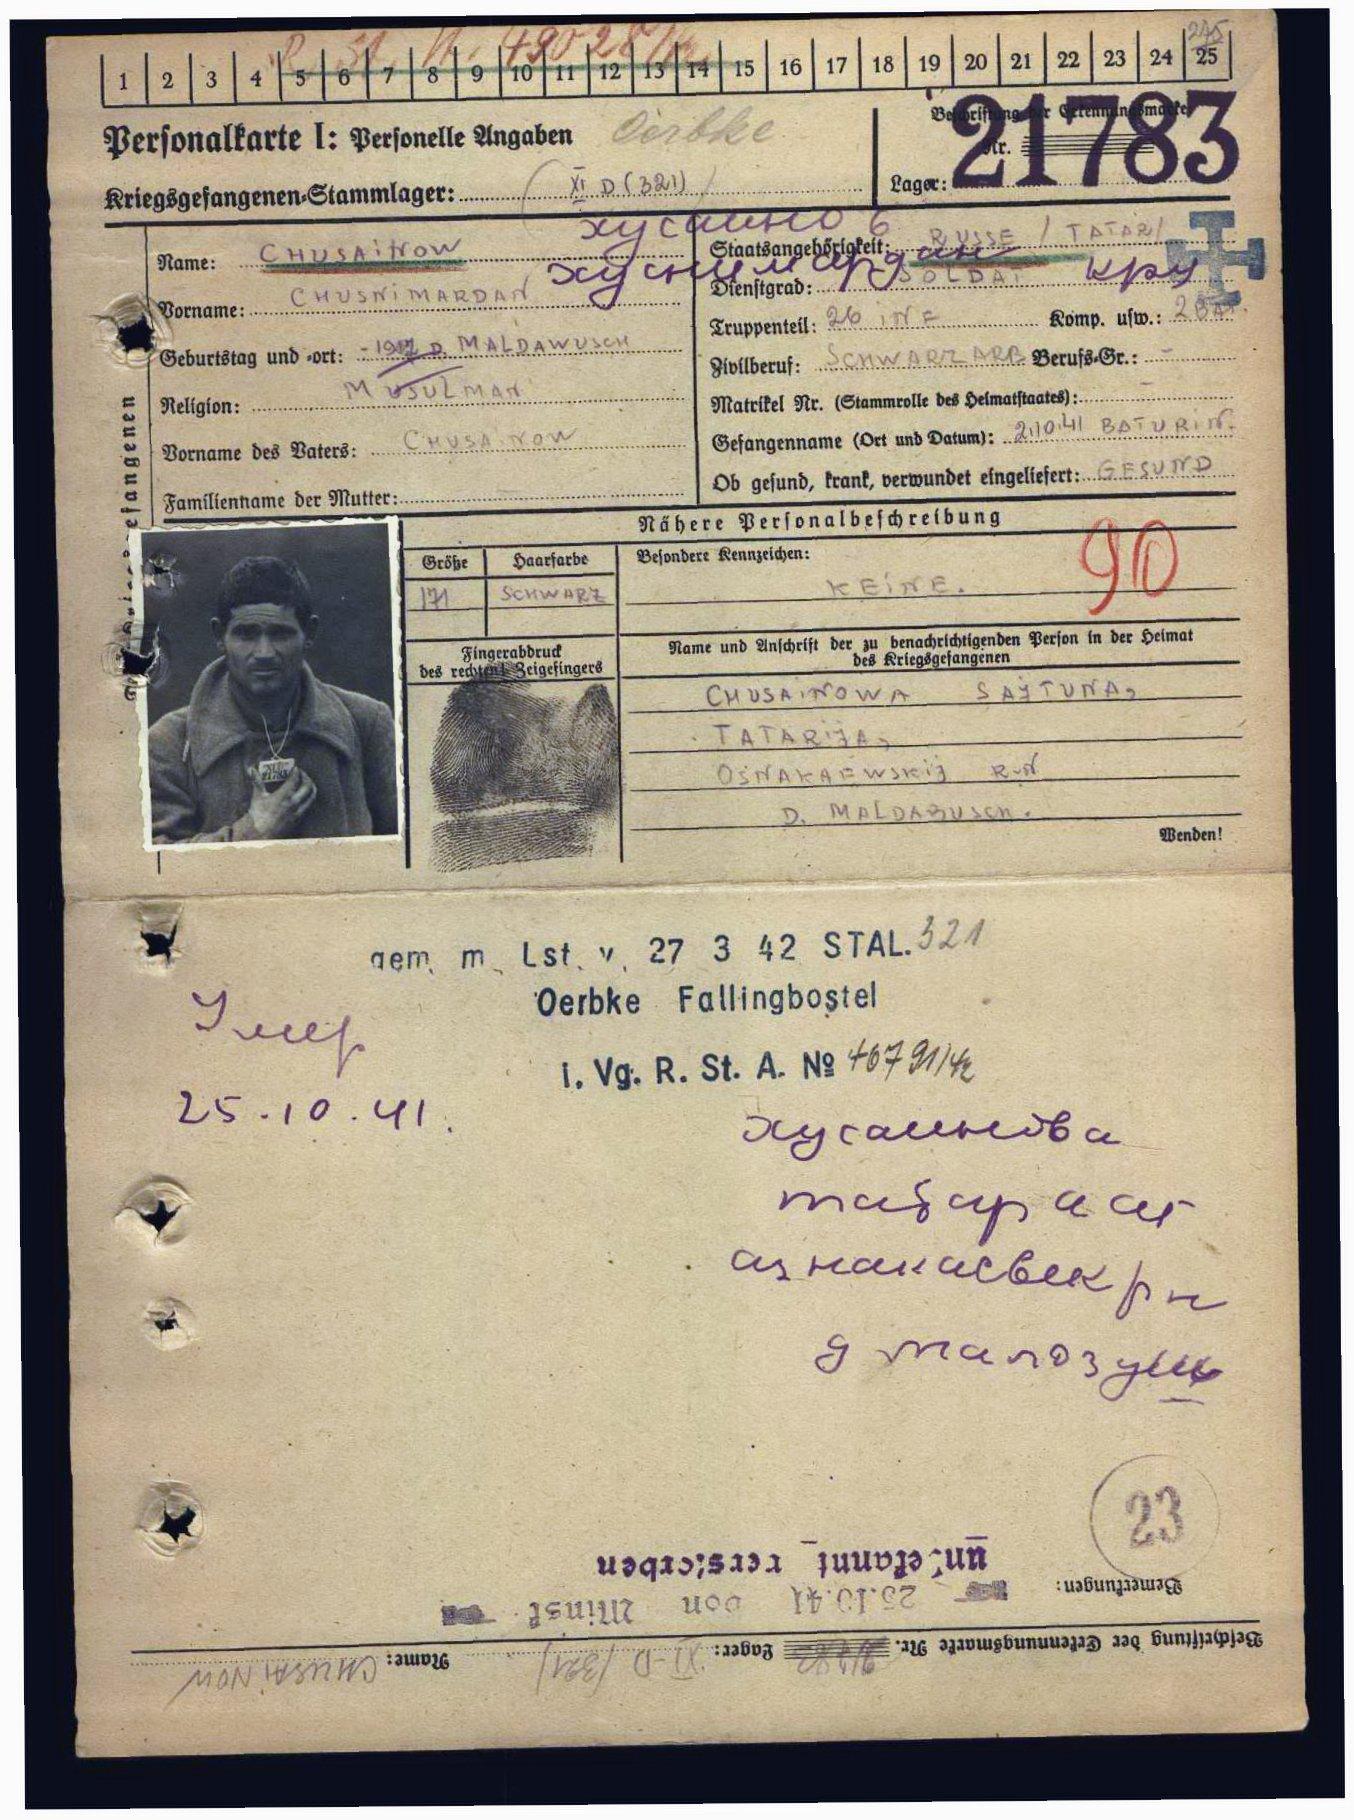 R. St. N. 49028/42
245
1 2 3 4 5 6 7 8 9 10 11 12 13 14 15 16 17 18 19 20 21 22 23 24 25
Personalkarte I: Personelle Angaben Oerbke
Beschriftung der Erkennungsmarke
Nr. 21783
Kriegsgefangenen-Stammlager: XI D (321)
Lager:
хусаинов
Name: CHUSAiNOW
Staatsangehörigkeit: RUSSE / TATAR/
хуснимардан кру
Vorname: CHUSNiMARDAN
Dienstgrad: SOLDAT
Geburtstag und -ort: D. MALDAWUSCH
Truppenteil: 26 iNF Komp. usw.: 2 BAT.
Religion: MUSULMAN
Zivilberuf: SCHWARZARB Berufs-Gr.: -
Matrikel Nr. (Stammrolle des Heimatstaates): -
Vorname des Vaters: CHUSAiNOW
Gefangenname (Ort und Datum): 2.10.41 BATURiN.
Familienname der Mutter:
Ob gesund, krank, verwundet eingeliefert: GESUND
Nähere Personalbeschreibung
Größe Haarfarbe
171 SCHWARZ
Besondere Kennzeichen:
KEiNE.
90
Fingerabdruck
des rechten Zeigefingers
Name und Anschrift der zu benachrichtigenden Person in der Heimat
des Kriegsgefangenen
CHUSAiNOWA SAYTUNA,
TATARiJA,
OSNAKAEWSKiJ R-N
D. MALDABUSCH.
Wenden!
gem. m. Lst. v. 27 3 42 STAL. 321
Oerbke Fallingbostel
i. Vg. R. St. A. № 46791/42
Умер
25.10.41.
хусаинова
татар аат
азнакаевск рн
д малозуш
23
Bemerkungen:
unbekannt verstorben
25.10.41 von Minsk
Beschriftung der Erkennungsmarke Nr. 21783 Lager: XI-D /321/ Name: CHUSAiNOW